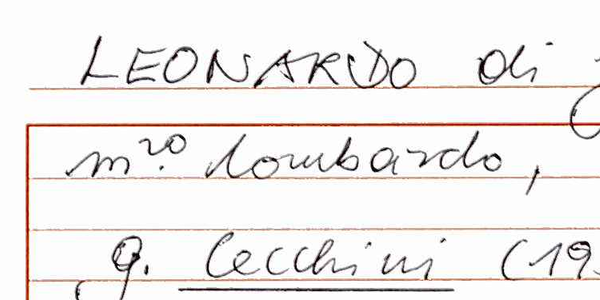 LEONARDO di
m.ro lombardo,
G. Cecchini (19